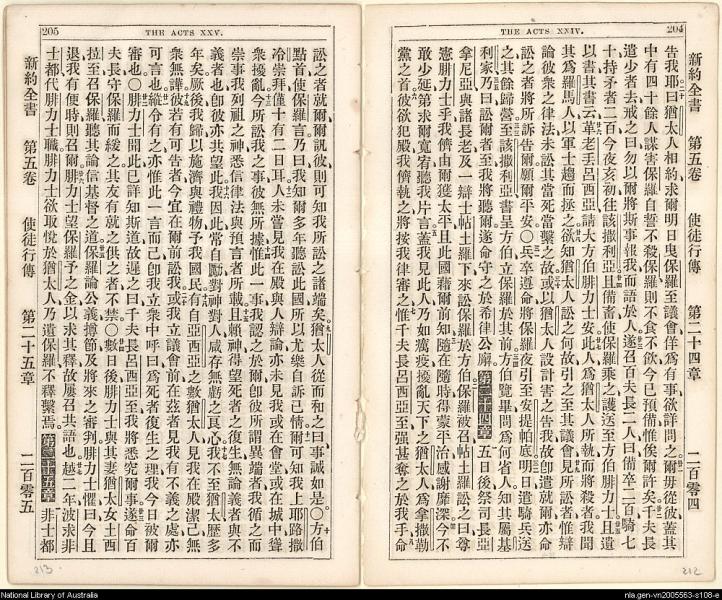 204
THE ACTS XXIV.
告我耶曰猶太人相約求爾明日曳保羅至議會佯為有事欲詳問之爾毋從彼蓋其
中有四十餘人謀害保羅自誓不殺保羅則不食不飲今已預備惟俟爾許矣千夫長
遣少者去戒之曰勿以爾將斯事報我而語於人遂召百夫長二人曰備卒二百騎七
十持矛者二百今夜亥初往該撒利亞且備畜使保羅乘之護送至方伯腓力士且遺
以書其書云革老丟呂西亞請大方伯腓力士安此人為猶太人所執而將殺者我聞
其為羅馬人以軍士趨而拯之欲知猶太人訟之何故引之至其議會見所訟者惟辯
論彼衆之律法未訟其當死當縶之故或以猶太人設計害之告我故卽遣就爾亦命
訟之者將所訴告爾願爾平安〇兵卒遵命將保羅夜引至安提帕底明日遣騎兵送
之其餘歸營至該撒利亞書呈方伯立保羅於其前方伯覽畢問為何省人知其屬基
利家乃曰訟爾者至我將聽爾遂命守之於希律公廨第二十四章五日後祭司長亞
拿尼亞與諸長老及一辯士帖土羅下來訟保羅於方伯保羅被召帖土羅訟之曰尊
憲腓力士乎我儕由爾獲太平且此國藉爾前知隨在隨時得蒙平治感謝靡深今不
敢少延第求爾寬宥聽我片言蓋我見此人乃如癘疫擾亂天下之猶太人為拿撒勒
黨之首彼欲犯殿我儕執之將按我律審之惟千夫長呂西亞至强甚奪之於我手命
新約全書 第五卷 使徒行傳 第二十四章 二百零四
212
205
THE ACTS XXV.
訟之者就爾爾訊彼則可知我所訟之諸端矣猶太人從而和之曰事誠如是〇方伯
點首使保羅言乃曰我知爾多年聽訟此國所以尤樂自訴己情爾可知我上耶路撒
冷崇拜僅十有二日耳人未嘗見我在殿與人辯論亦未見我或在會堂或在城中聳
衆擾亂今所訟我之事彼無所據惟此一事我認之於爾卽彼所謂異端者我循之而
崇事我列祖之神悉信律法與預言者所載且賴神得望死者之復生無論義者與不
義者也卽彼亦共望此我因此常自勵對神對人咸存無虧之良心我不至猶太歷多
年矣厥後我歸以施濟與禮物予我國民有自亞西亞之數猶太人見我在殿潔己無
衆無譁彼若有可告者今宜在爾前訟我或我立議會前在玆者見我有不義之處亦
可言也縱令有之亦惟此一言而己卽我立衆中呼曰為死者復生之理我今日被爾
審也〇腓力士聞此已詳知斯道故遲之曰千夫長呂西亞至我將悉究爾事遂命百
夫長守保羅而緩之其友有就之供之者不禁〇數日後腓力士與其妻猶太女土西
拉至召保羅聽其論信基督之道保羅論公義撙節及將來之審判腓力士懼曰今且
退我有便時則召爾腓力士望保羅予之金以求其釋故屢召其語也越二年波求非
士都代腓力士職腓力士欲取悅於猶太人乃遺保羅不釋繫焉第二十五章非士都
新約全書 第五卷 使徒行傳 第二十五章 二百零五
213
National Library of Australia
nla.gen-vn2005563-s108-e